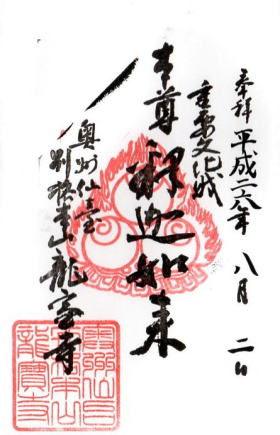 奉拝 平成二六年 八月 二日
重要文化財
本尊 釋迦如来
奥州仙臺
別格本山 龍宝寺
龍寶寺